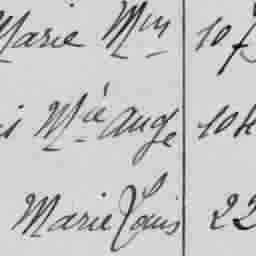 Marie Mln 107
Mie Ange 104
Marie Louis 22